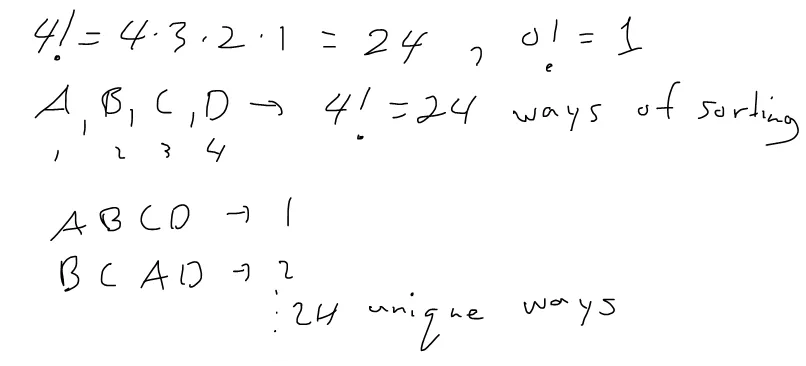 4! = 4·3·2·1 = 24 , 0! = 1
A, B, C, D → 4! = 24 ways of sorting
1 2 3 4
A B C D → 1
B C A D → 2
⋮ 24 unique ways